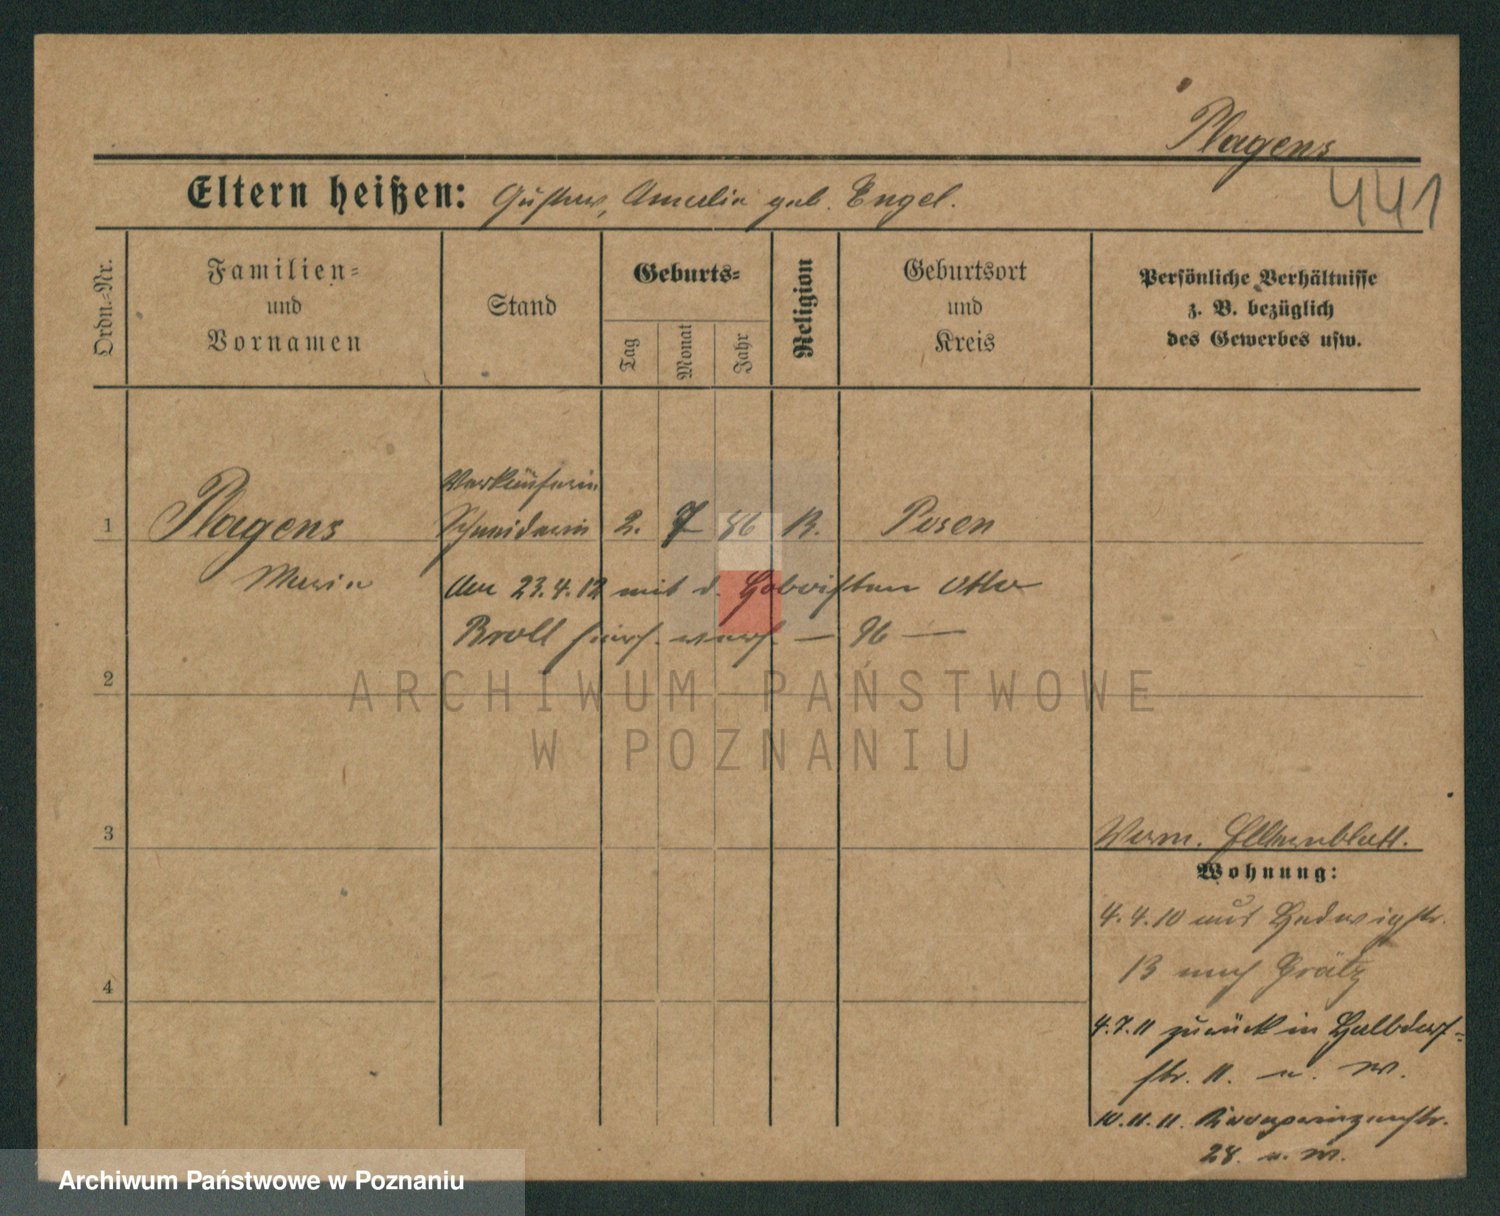 Plagens
441
Eltern heißen: Gustav, Amalie geb. Engel.
Ordn.-Nr.
Familien-
und
Vornamen
Stand
Geburts-
Tag
Monat
Jahr
Religion
Geburtsort
und
Kreis
Persönliche Verhältnisse
z. B. bezüglich
des Gewerbes usw.
Verkäuferin
1 Plagens Schneiderin 2. 7 86 Posen
Maria Am 23.4.12 mit d. Otto
Broll
2
ARCHIWUM PAŃSTWOWE
W POZNANIU
3 Verm. Elternblatt.
Wohnung:
4.4.10 aus Hedwigstr.
13 nach Grätz
4 4.7.11 zurück in Halbdorf-
str. 11. u. W.
10.11.11. Kronprinzenstr.
28. u. W.
Archiwum Państwowe w Poznaniu